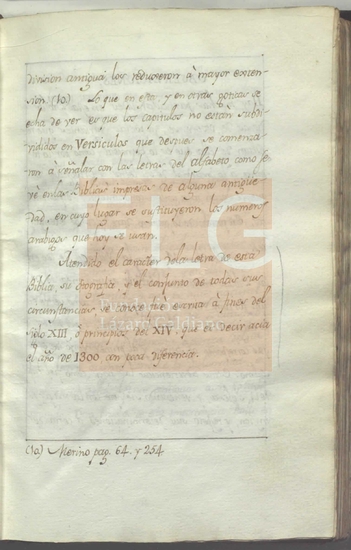 division antigua, los reduxeron à mayor exten-
sion. (10.) Lo que en esta, y en otras goticas se
echa de ver es que los capitulos no están subdi-
vididos en Versiculos que despues se comenza-
ron à señalar con las letras del alfabeto, como se
vè en las Biblias impresas de alguna antigue-
dad, en cuyo lugar se substituyeron los numeros
arabigos que hoy se usan.
Atendido el caracter de la letra de esta
Biblia, su ortografia, y el conjunto de todas sus
circunstancias, se conoce fuè escrita à fines del
siglo XIII, ò principios del XIV, que es decir, acia
el año de 1300 con poca diferencia.
(10.) Merino pag. 64. y 254
FLG
Fundación
Lázaro Galdiano